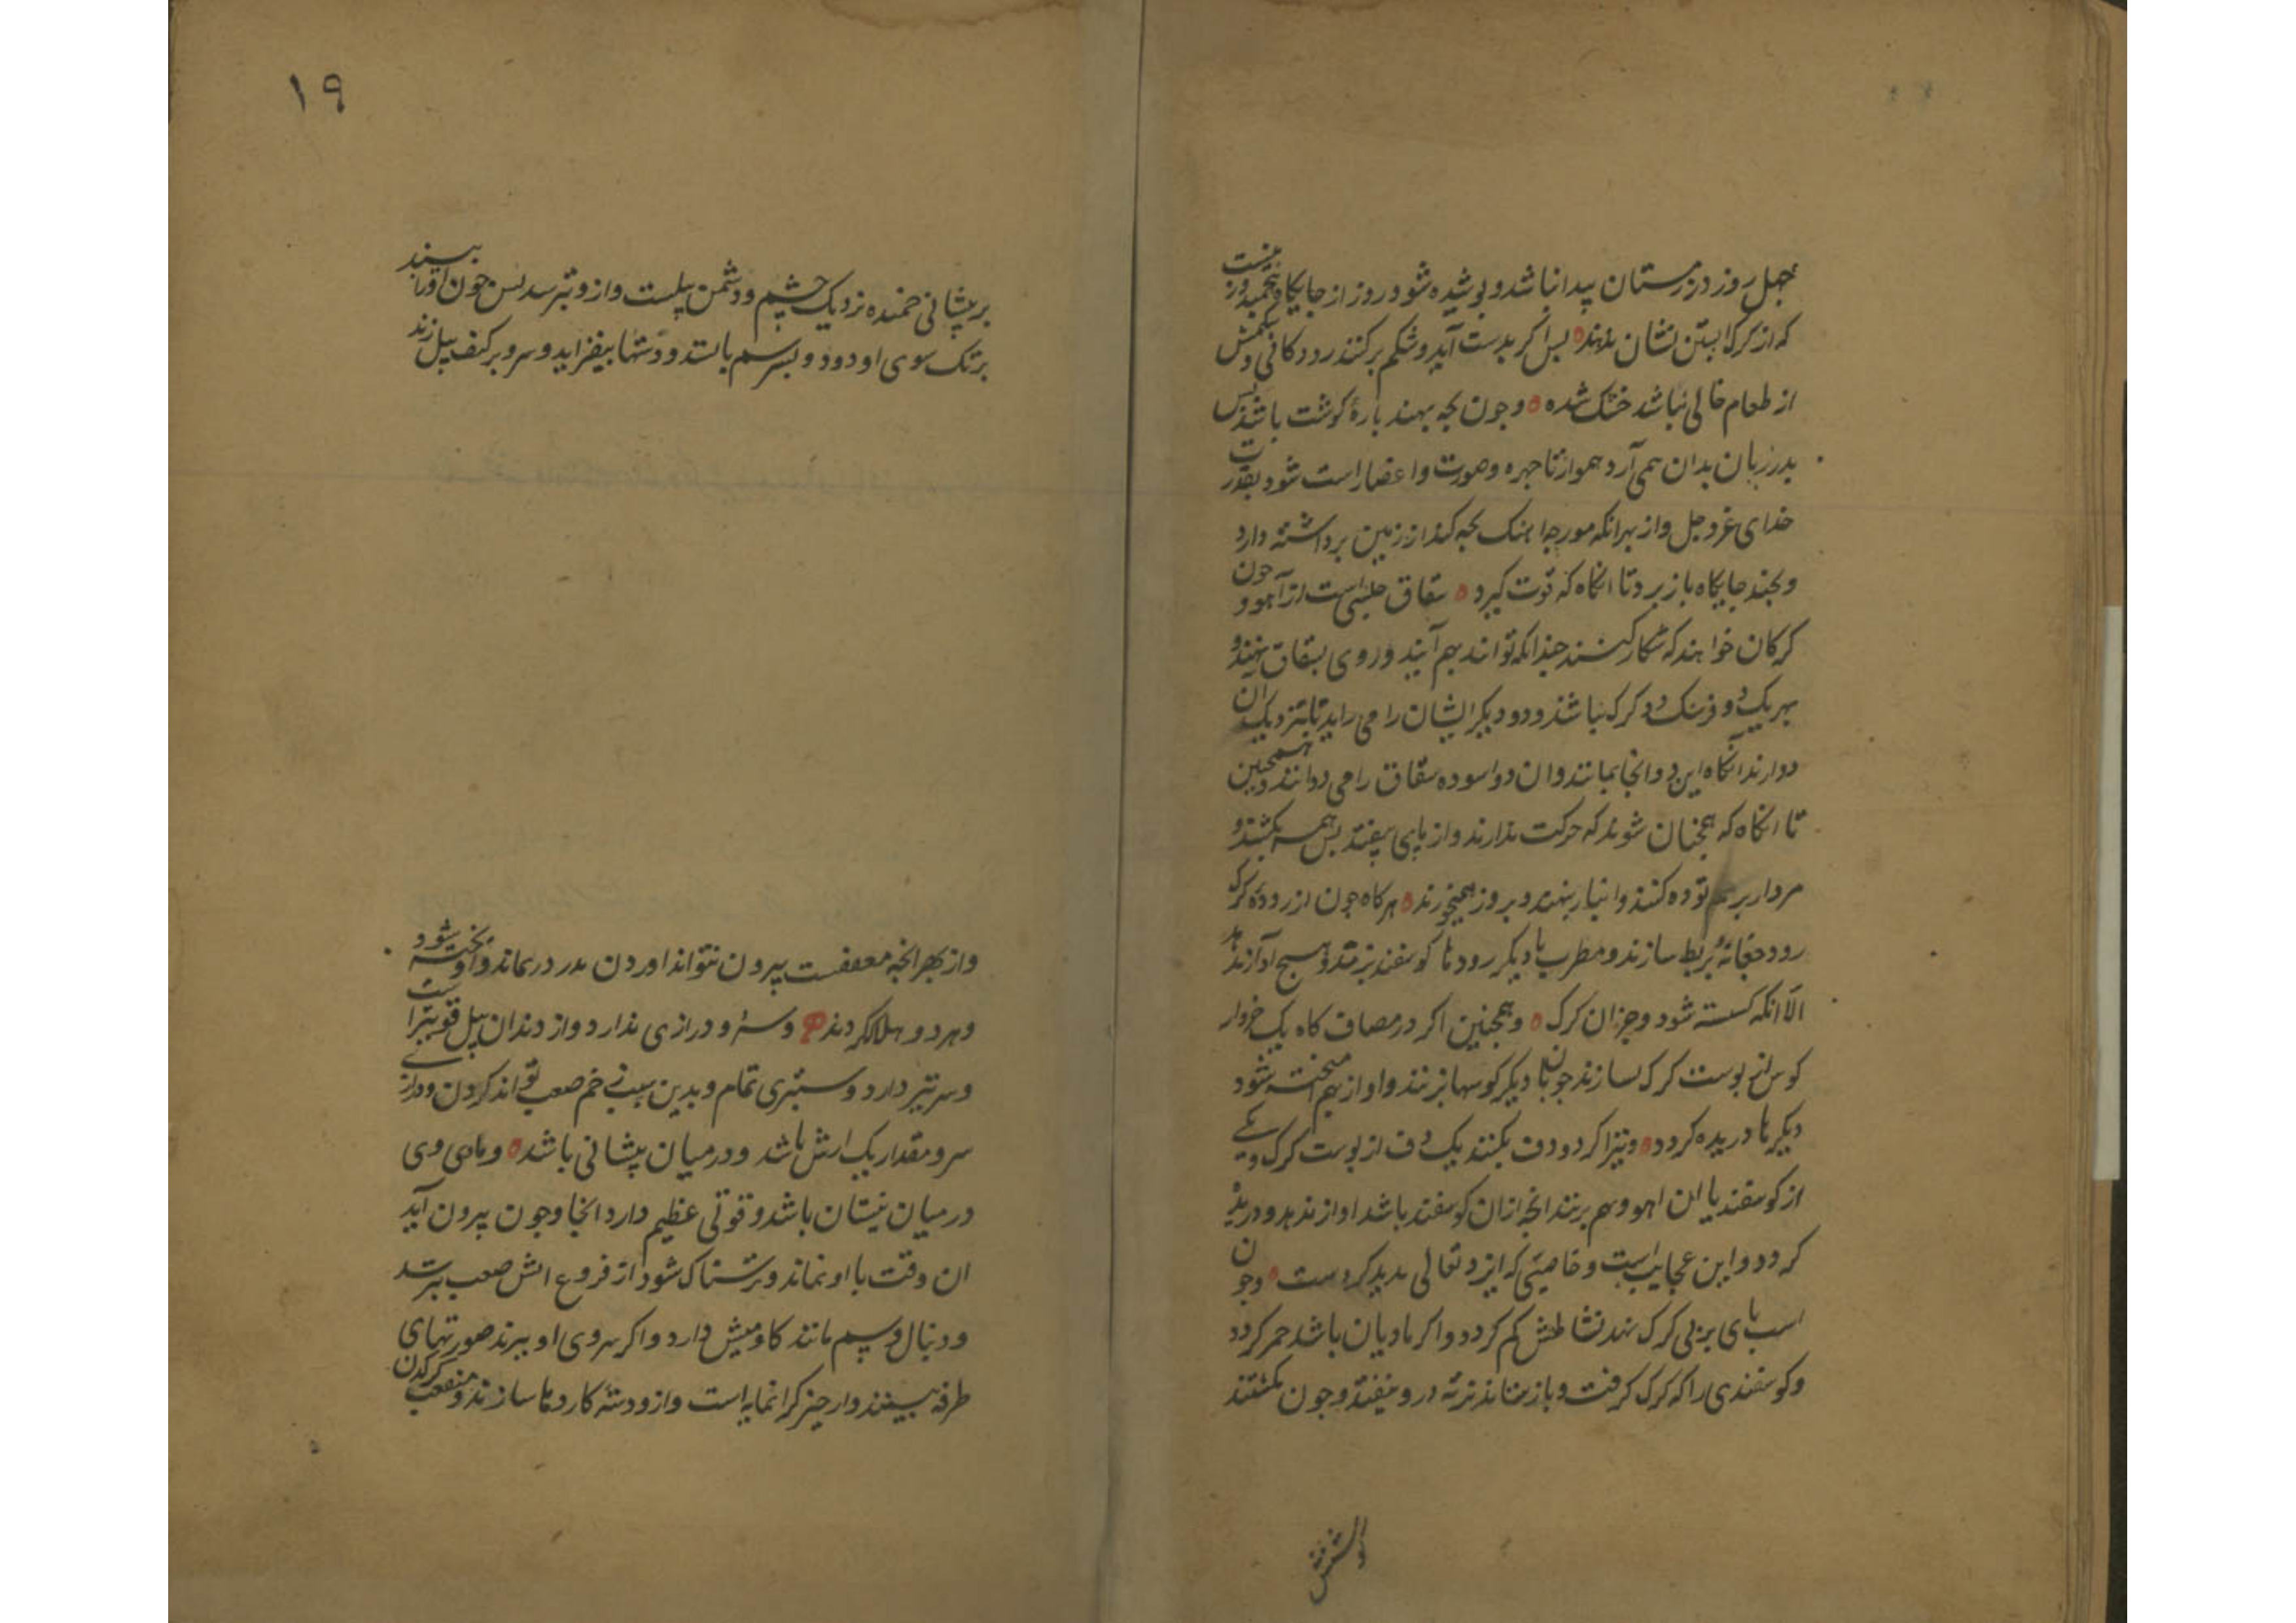 چهل روز در زمستان پیدا نباشد و پوشیده شود و روز از جایگاه نجنبد و نیست
که از کرک ابستن نشان بدهند بس اکر بدست آید و شکم بر کنند روددکانی و شکمش
از طعام خالی نباشد خشک شده و جون بجه بنهد بارهٔ کوشت باشد بس
بدر زبان بدان همی آرد هموار تا جهره و صورت و اعضا راست شود بقدرت
خدای عزوجل و از بهر انکه مورجه اهنک بجه کند از زمین برداشته دارد
و بجند جایکاه باز برد تا انکاه که قوت کیرد سقاق جنسی است از آهو و جون
کرکان خواهند که شکار کنند جندانکه توانند بهم آیند و روی بسقاق نهند و
بهر یک دو فرسنک دو کرک باشد و دو دیکر ایشان را می راند تا بنزدیک ان
دو ارند انکاه این دو انجا بمانند و ان دو اسوده سقاق را می دوانند و همجنین
تا انکاه که همجنان شوند که حرکت ندارند و از بای بیفتند بس همه بکشند و
مردار بر هم توده کنند و انبار نهند و بروز همیخورند هر کاه جون از رودهٔ کرک
رود جغانه و بربط سازند و مطرب با دیکر رودها کوسفند بزند هیج آواز ندهد
الا انکه کسسته شود و جز ان کرک و همجنین اکر در مصاف کاه یک خروار
کوس از بوست کرک بسازند جون با دیکر کوسها بزنند و اواز بهم سخته شود
دیکرها دریده کردد و نیز اکر دو دف بکنند یک دف از بوست کرک و یکی
از کوسفند یا ان اهو و بهم بزنند انجه از ان کوسفند باشد اواز ندهد و دریده
کردد و این عجایب است و خاصیتی که ایزد تعالی بدید کردست و جون
اسب بای بر بی کرک نهد نشاطش کم کردد و اکر مادیان باشد حمر کردد
و کوسفندی را که کرک کرفت و باز ستانند نرنه در و نیفتد و جون بکشتند
۱۹
بر پیشانی خمنده نزدیک چشم و دشمن پیلست و ازو بترسد بس جون او را ببیند
بر تک سوی او دود و بسر سم بایستد و دستها بیفرازد و سرو بر کتف پیل زند
و از بهر انجه معقفست بیرون نتواند اوردن بدر درماند و اوخته شود
و هر دو هلاک کردند و سرو درازی ندارد و از دندان پیل قویترست
و سر تیز دارد و ستبری تمام و بدین سبب زخم صعب تواند کردن و درازی
سرو مقدار یک ارش باشد و در میان پیشانی باشد و ماوی وی
در میان نیستان باشد و قوتی عظیم دارد انجا و جون بیرون آید
ان وقت با او نماند و ترسناک شود از فروغ اتش صعب بترسد
و دنبال و سم مانند کاومیش دارد و اکر سروی او ببرند صورتهای
طرفه ببینند و ارجیز کرانمایه است و ازو دستهٔ کاردها سازند